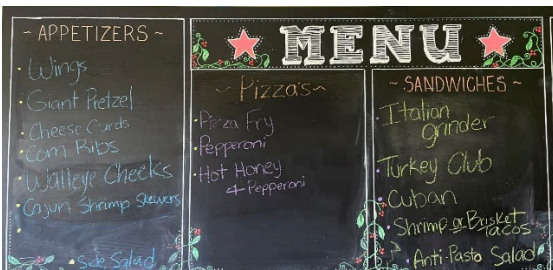 ~ APPETIZERS ~
· Wings
· Giant Pretzel
· Cheese Curds
· Corn Ribs
· Walleye Cheeks
· Cajun Shrimp Skewers
·
· Side Salad
MENU
~ Pizza's ~
· Pizza Fry
· Pepperoni
· Hot Honey
& Pepperoni
~ SANDWICHES ~
· Italian
grinder
· Turkey Club
· Cuban
· Shrimp or Brisket
Tacos
· Anti-Pasto Salad